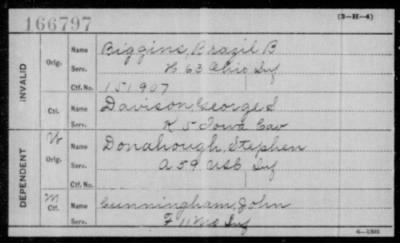 166797
(3-H-4)
INVALID
Orig.
Name Biggins, Brazil B
Serv. H 63 Ohio Inf
Ctf. No. 151907
Ctf.
Name Davison, George S
Serv. K 5 Iowa Cav
DEPENDENT
W
Orig.
Name Donahough, Stephen
Serv. A 59 Inf
Ctf. No.
M
Ctf.
Name Cunningham, John
Serv. F 11 Inf